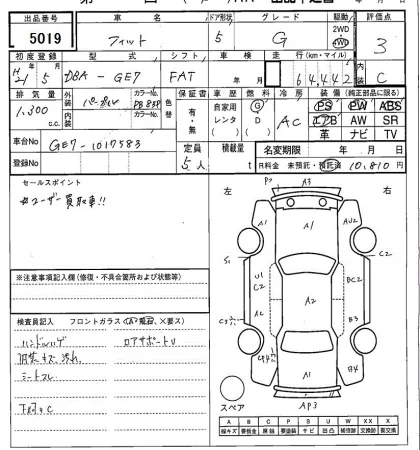 出品番号 車名 ドア形状 グレード 駆動 評価点
5019 フィット 5 G 2WD 4WD 3
初度登録 型式 シフト 車検 走行(km・マイル) 内装
H21年5月 DBA-GE7 FAT 年 月 64,442 C
排気量 外装 カラーNo. 色替 保証書 車歴 燃料 冷房 装備(純正部品に限る)
1,300 c.c. パープル 有・無 自家用 レンタ G D AC PS PW ABS
内装 カラーNo. エアB AW SR
革 ナビ TV
車台No. GE7-1017583 定員 積載量 名変期限 年 月 日
登録No. 5人 t R料金 未預託・預託済 10,810円
セールスポイント
☆ユーザー買取車!!
左 右
※注意事項記入欄(修復・不具合箇所および状態等)
検査員記入 フロントガラス(A・飛石、×要ス)
ハンドルハゲ ロアサポートU
内装キズ、汚れ
シートスレ
下廻りC
A3
A1 A1 AU2
S1 C2
U1 C2 A2 DC2
A2 B3
A1
AP3
スペア
A B C P S U W X XX
線キズ 要板金 腐蝕 要塗装 サビ 凹凸 補修跡 交換跡 要交換